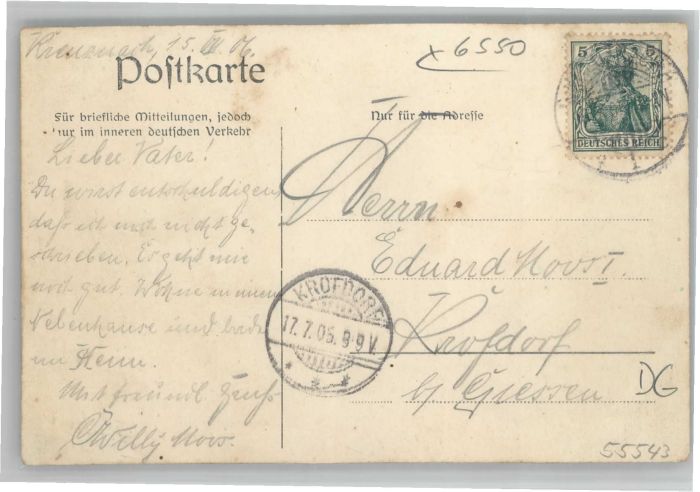 Kreuznach, 15. VII 06.
Postkarte
Für briefliche Mitteilungen, jedoch
nur im inneren deutschen Verkehr
Lieber Vater!
Du wirst entschuldigen
daß ich noch nicht ge-
schrieben. Es geht mir
noch gut. Wohne in einem
Nebenhause und bade
Mit freundl. Gruß
Willy Moos
x 6550
Nur für die Adresse
5 5
DEUTSCHES REICH
Herrn
Eduard Moos I.
Krofdorf
b/ Giessen
KROFDORF
17.7.06. 8-9V.
DG
55543